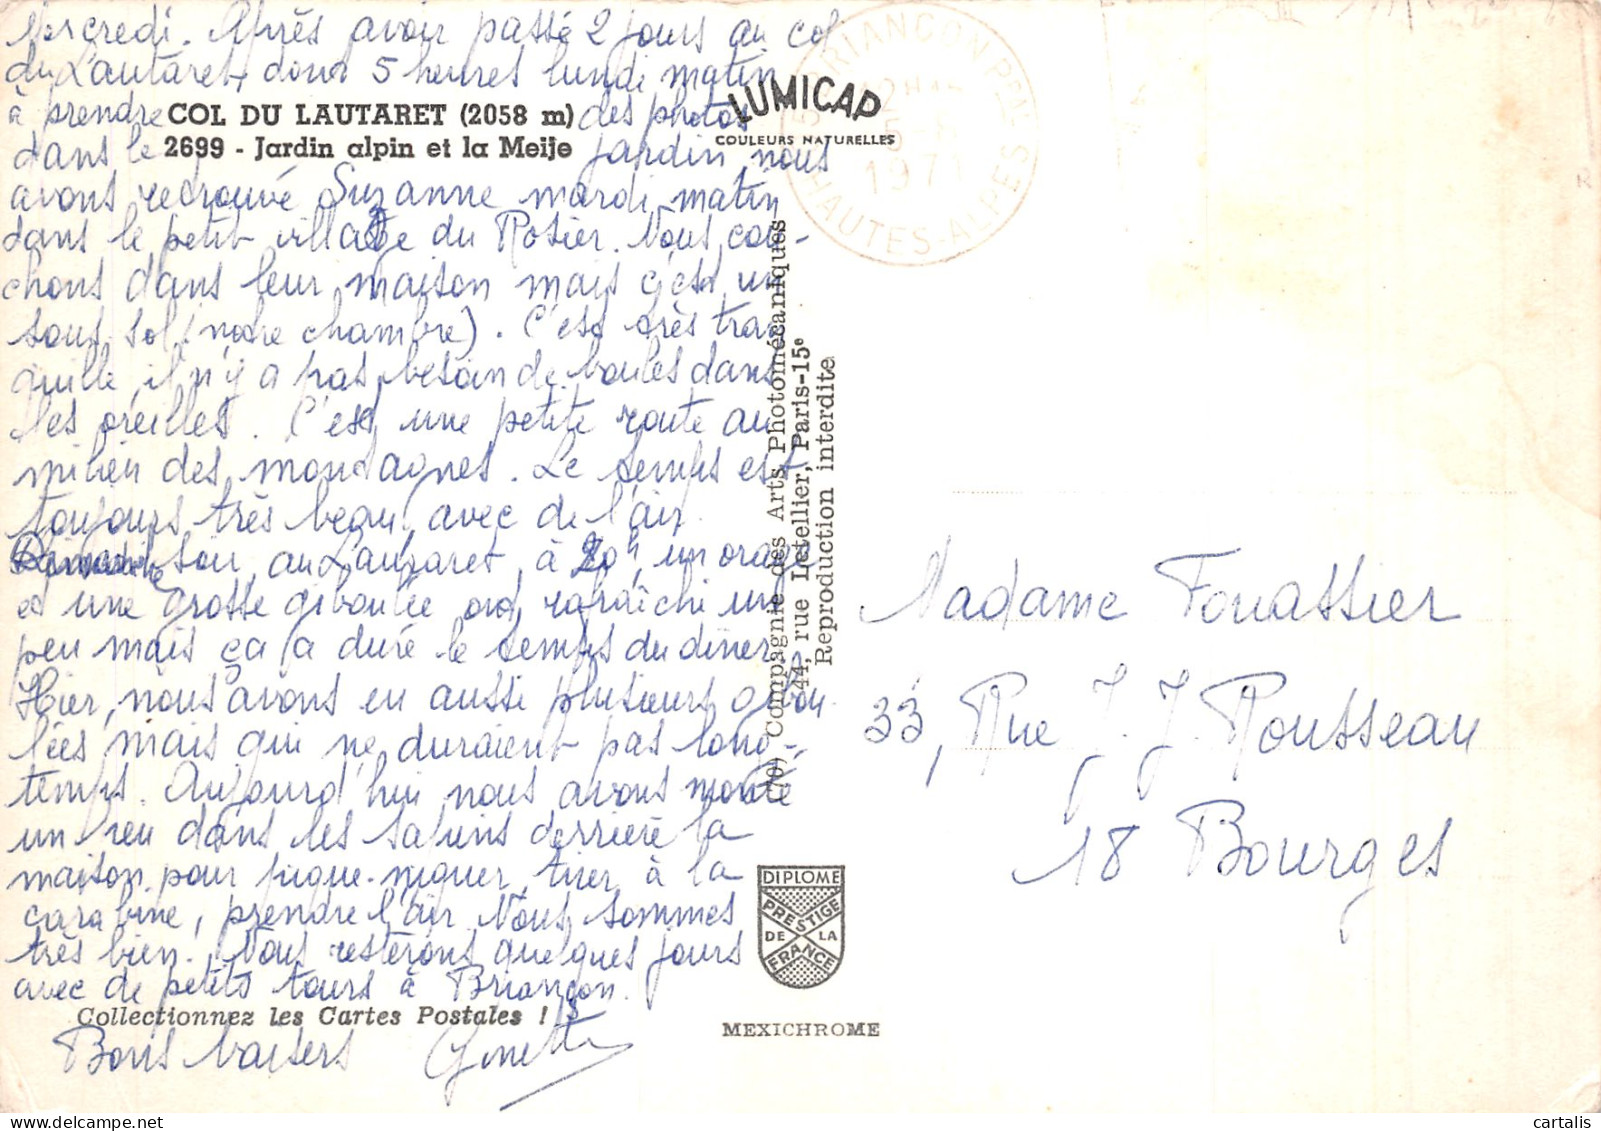 Mercredi. Après avoir passé 2 jours au col
du Lautaret dont 5 heures lundi matin
à prendre des photos
dans le jardin, nous
avons retrouvé Suzanne mardi matin
dans le petit village du Rosier. Nous cou-
chons dans leur maison mais c'est un
sous-sol (notre chambre). C'est très tran
quille, il n'y a pas besoin de boules dans
les oreilles. C'est une petite route au
milieu des montagnes. Le temps est
toujours très beau, avec de l'air.
Dimanche soir, au Lautaret, à 20h, un orage
et une grosse giboulée ont rafraîchi un
peu mais ça a duré le temps du dîner.
Hier, nous avons eu aussi plusieurs gibou
lées mais qui ne duraient pas long-
temps. Aujourd'hui nous avons monté
un peu dans les sapins derrière la
maison pour pique-niquer, tirer à la
carabine, prendre l'air. Nous sommes
très bien. Nous resterons quelques jours
avec de petits tours à Briançon.
Bons baisers Ginette
COL DU LAUTARET (2058 m)
2699 - Jardin alpin et la Meije
LUMICAP
COULEURS NATURELLES
BRIANÇON PPAL
5-8
1971
HAUTES-ALPES
Compagnie des Arts Photomécaniques
44, rue Letellier, Paris-15e
Reproduction interdite
Madame Fouassier
33, Rue J. J. Rousseau
18 Bourges
DIPLOME
PRESTIGE
DE LA
FRANCE
Collectionnez les Cartes Postales !
MEXICHROME
delcampe.net
cartalis